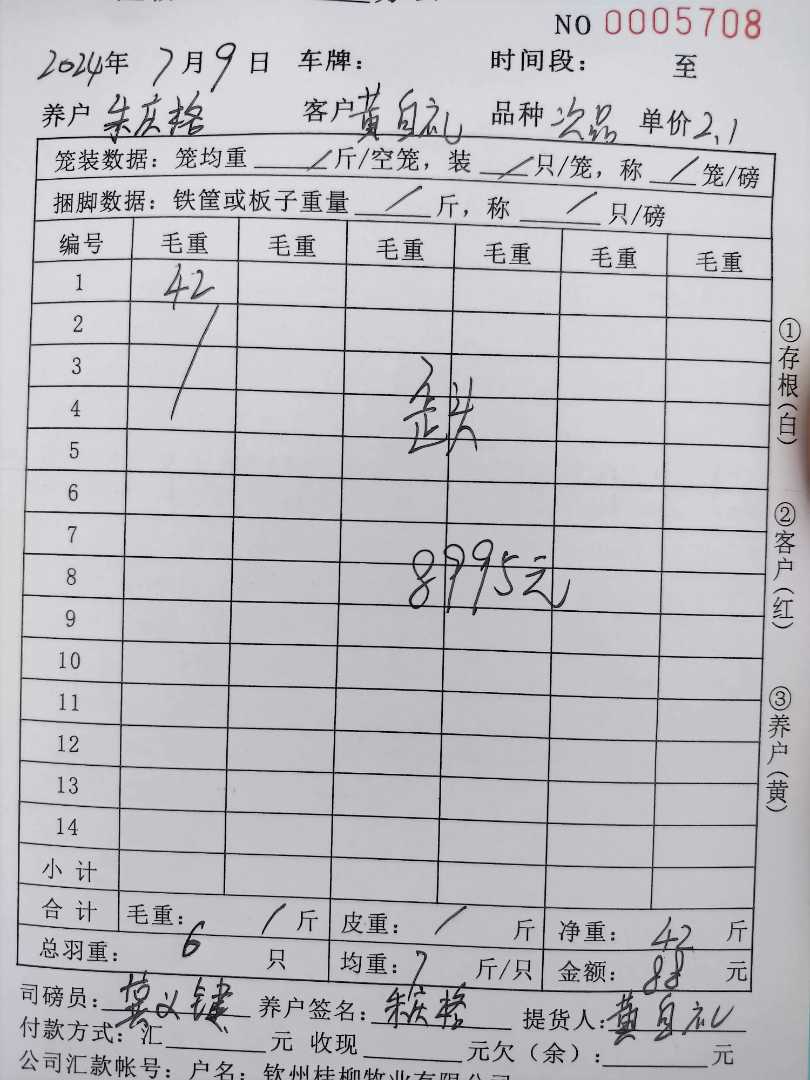 NO 0005708
2024年 7月9日 车牌： 时间段： 至
养户 朱庆格 客户 黄自礼 品种 次品 单价 2.1
笼装数据：笼均重 / 斤/空笼，装 / 只/笼，称 / 笼/磅
捆脚数据：铁筐或板子重量 / 斤，称 / 只/磅
编号 毛重 毛重 毛重 毛重 毛重 毛重
1 42
2 /
3
4 歪头
5
6
7
8 8995元
9
10
11
12
13
14
小计
合计 毛重： / 斤 皮重： / 斤 净重： 42 斤
总羽重： 6 只 均重： 7 斤/只 金额： 88 元
司磅员： 养户签名：朱庆格 提货人：黄自礼
付款方式：汇 元 收现 元欠（余）： 元
公司汇款帐号：户名：钦州桂柳牧业有限公司
①存根（白） ②客户（红） ③养户（黄）